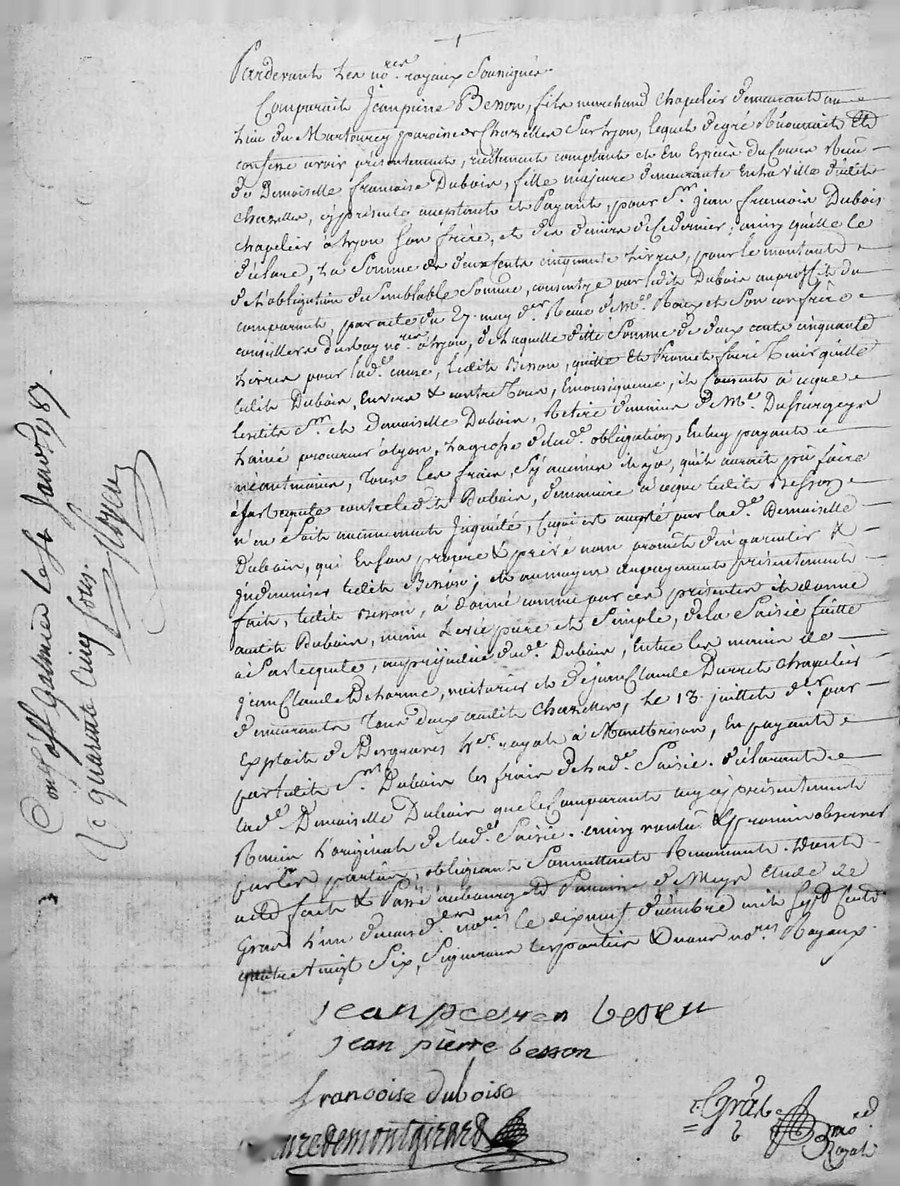 Pardevant les no.res royaux Sousignés
Comparait Jeanpierre Besson, fils marchand chapelier demeurant au
Lieu du Martourey paroisse de Chazelles Sur Lyon, lequel degré Reconnait Et
confesse avoir présentement, réellement comptant et En Espèces du Cours Reçu
de Demoiselle francoise Dubois, fille majeure demeurante En la ville dudit
Chazelles, cy présente acceptante et Payante, pour Sr. jean francois Dubois
chapelier à Lyon Son frère, et des deniers de Ce dernier, ainsy qu'elle le
déclare, La Somme de deux cents cinquante Livres, pour le montant
de L'obligation de Semblable Somme, consentye par ledit Dubois au proffit du
comparant, par acte du 27 may der. Recue de Me. et Son confrère
conseillers du Roy no.res à Lyon, de Laquelle ditte Somme de deux cents cinquante
Livres pour lad.e cause, ledit Besson, quitte Et Promet faire Tenir quitte
ledit Dubois, Envers & contre Tous, Emonséquence, il Consent à ceque
lesdits Sr. et demoiselle Dubois, Retire des mains de Me. Dufourgeys
L'ainé procureur à Lyon, La grosse de lad.e obligation, En luy payant
néantmoins, Tous les frais, Sy aucuns il y a, qu'il aurait pu faire
à Sa Requete contre led. Dubois, demanière à ceque ledit Besson
n'en Soit aucunement Inquiété, Ce qui est accepté par lad.e Demoiselle
Dubois, qui En Son propre & privé nom promet d'en garentir &
Indemniser ledit Besson; et au moyen du payement présentement
fait, ledit Besson, à donné comme par ces présentes il donne
audit Dubois, main Levée pure et Simple, de la Saisie faitte
à Sa Requete, au préjudice dud. Dubois, Entre les mains de
jean Claude Delorme, voiturier et de jean Claude Durret chapelier
demeurants Tous deux audit Chazelles, le 13 juillet der. par
Exploit de Desgranges her. royal à Montbrison, En payant
par ledit Sr. Dubois les frais de lad.e Saisie. déclarant
lad.e Demoiselle Dubois que le Comparant luy a présentement
Remis L'original de lad.e Saisie. ainsy voulu & Promis observer
par les parties, obligeant Soumettant Renonçant. Dont
acte fait & Passé au bourg et Paroisse de Meys Etude de
Gras L'un desd. no.res le dix neuf décembre mil Sept Cents
quatre vingt Six, Signeront les parties & nous no.res Royaux.
jean pierre besson
francoise duboise
demontgirard
Gras
no.re
Royal
Cont. à St Galmier le Janv. 1787.
Rc quarante Cinq Sols.